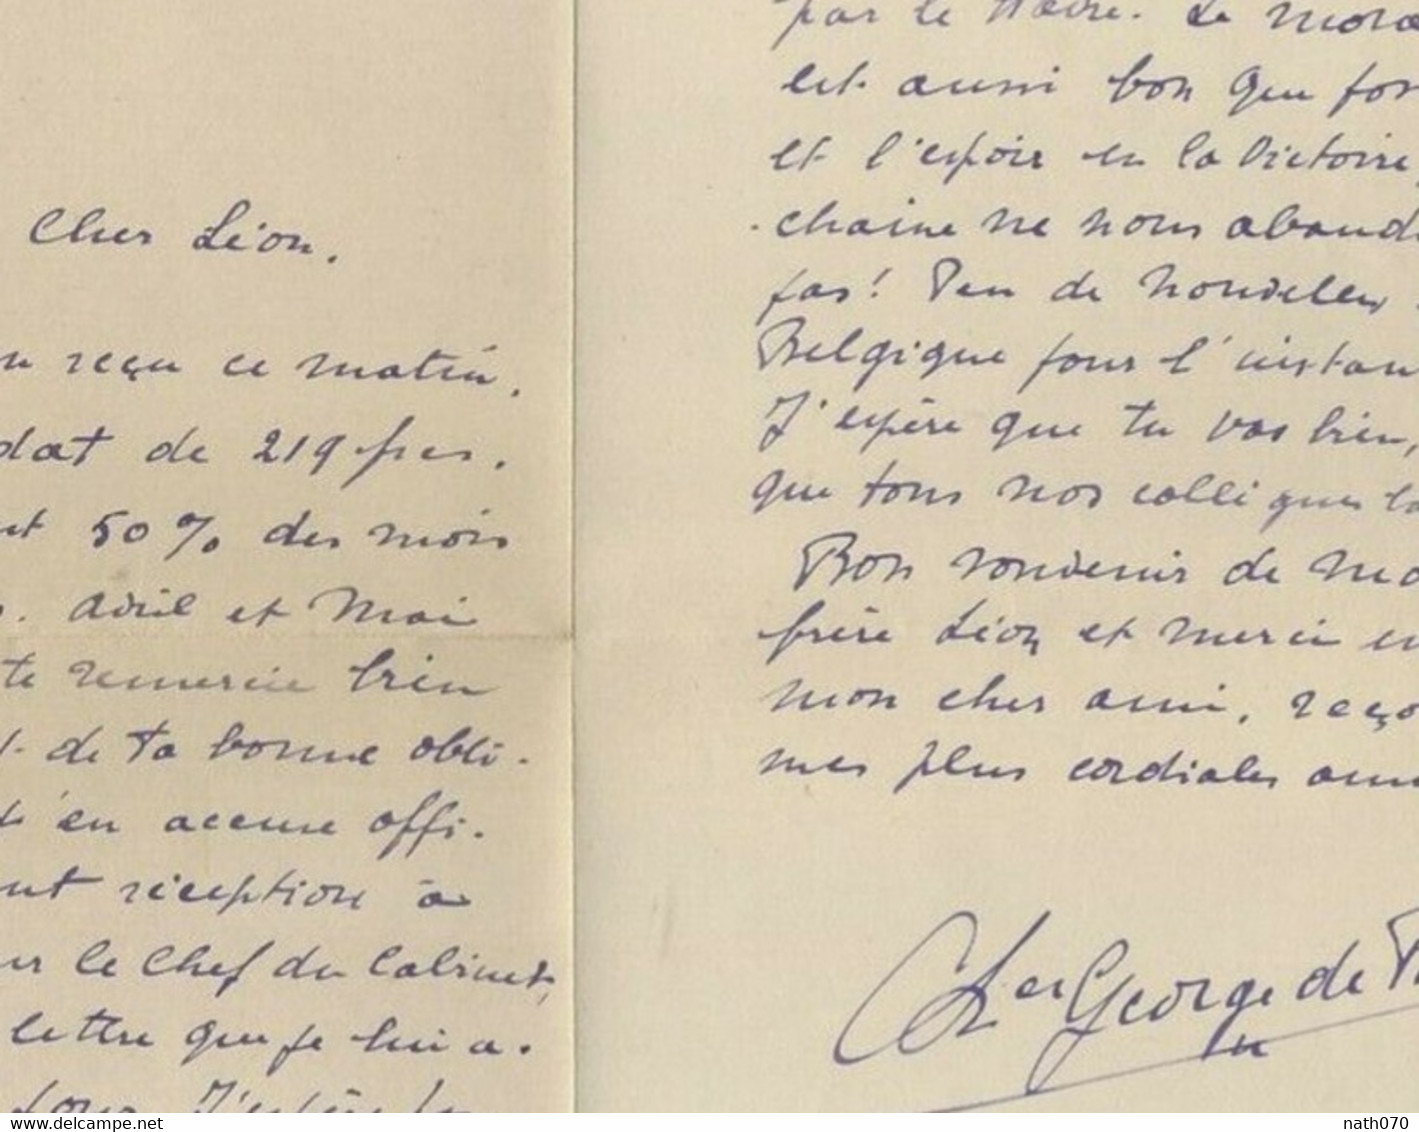 Cher Léon.
reçu ce matin.
dat de 219 frcs.
50% des mois
Avril et Mai
te remercie bien
de ta bonne obli-
j'en accuse offi-
nt réception à
ur le Chef du Cabinet,
lettre que je lui a-
J'espère
par le Havre. Le mora
est aussi bon que
et l'espoir en la Victoire
chaine ne nous aband
pas! Peu de nouvelles
Belgique pour l'instan
J'espère que tu vas bien,
que tous nos collègues
Bon souvenir de mo
frère Léon et merci en
mon cher ami, reço
mes plus cordiales ami
Cher George de
delcampe.net
nath070